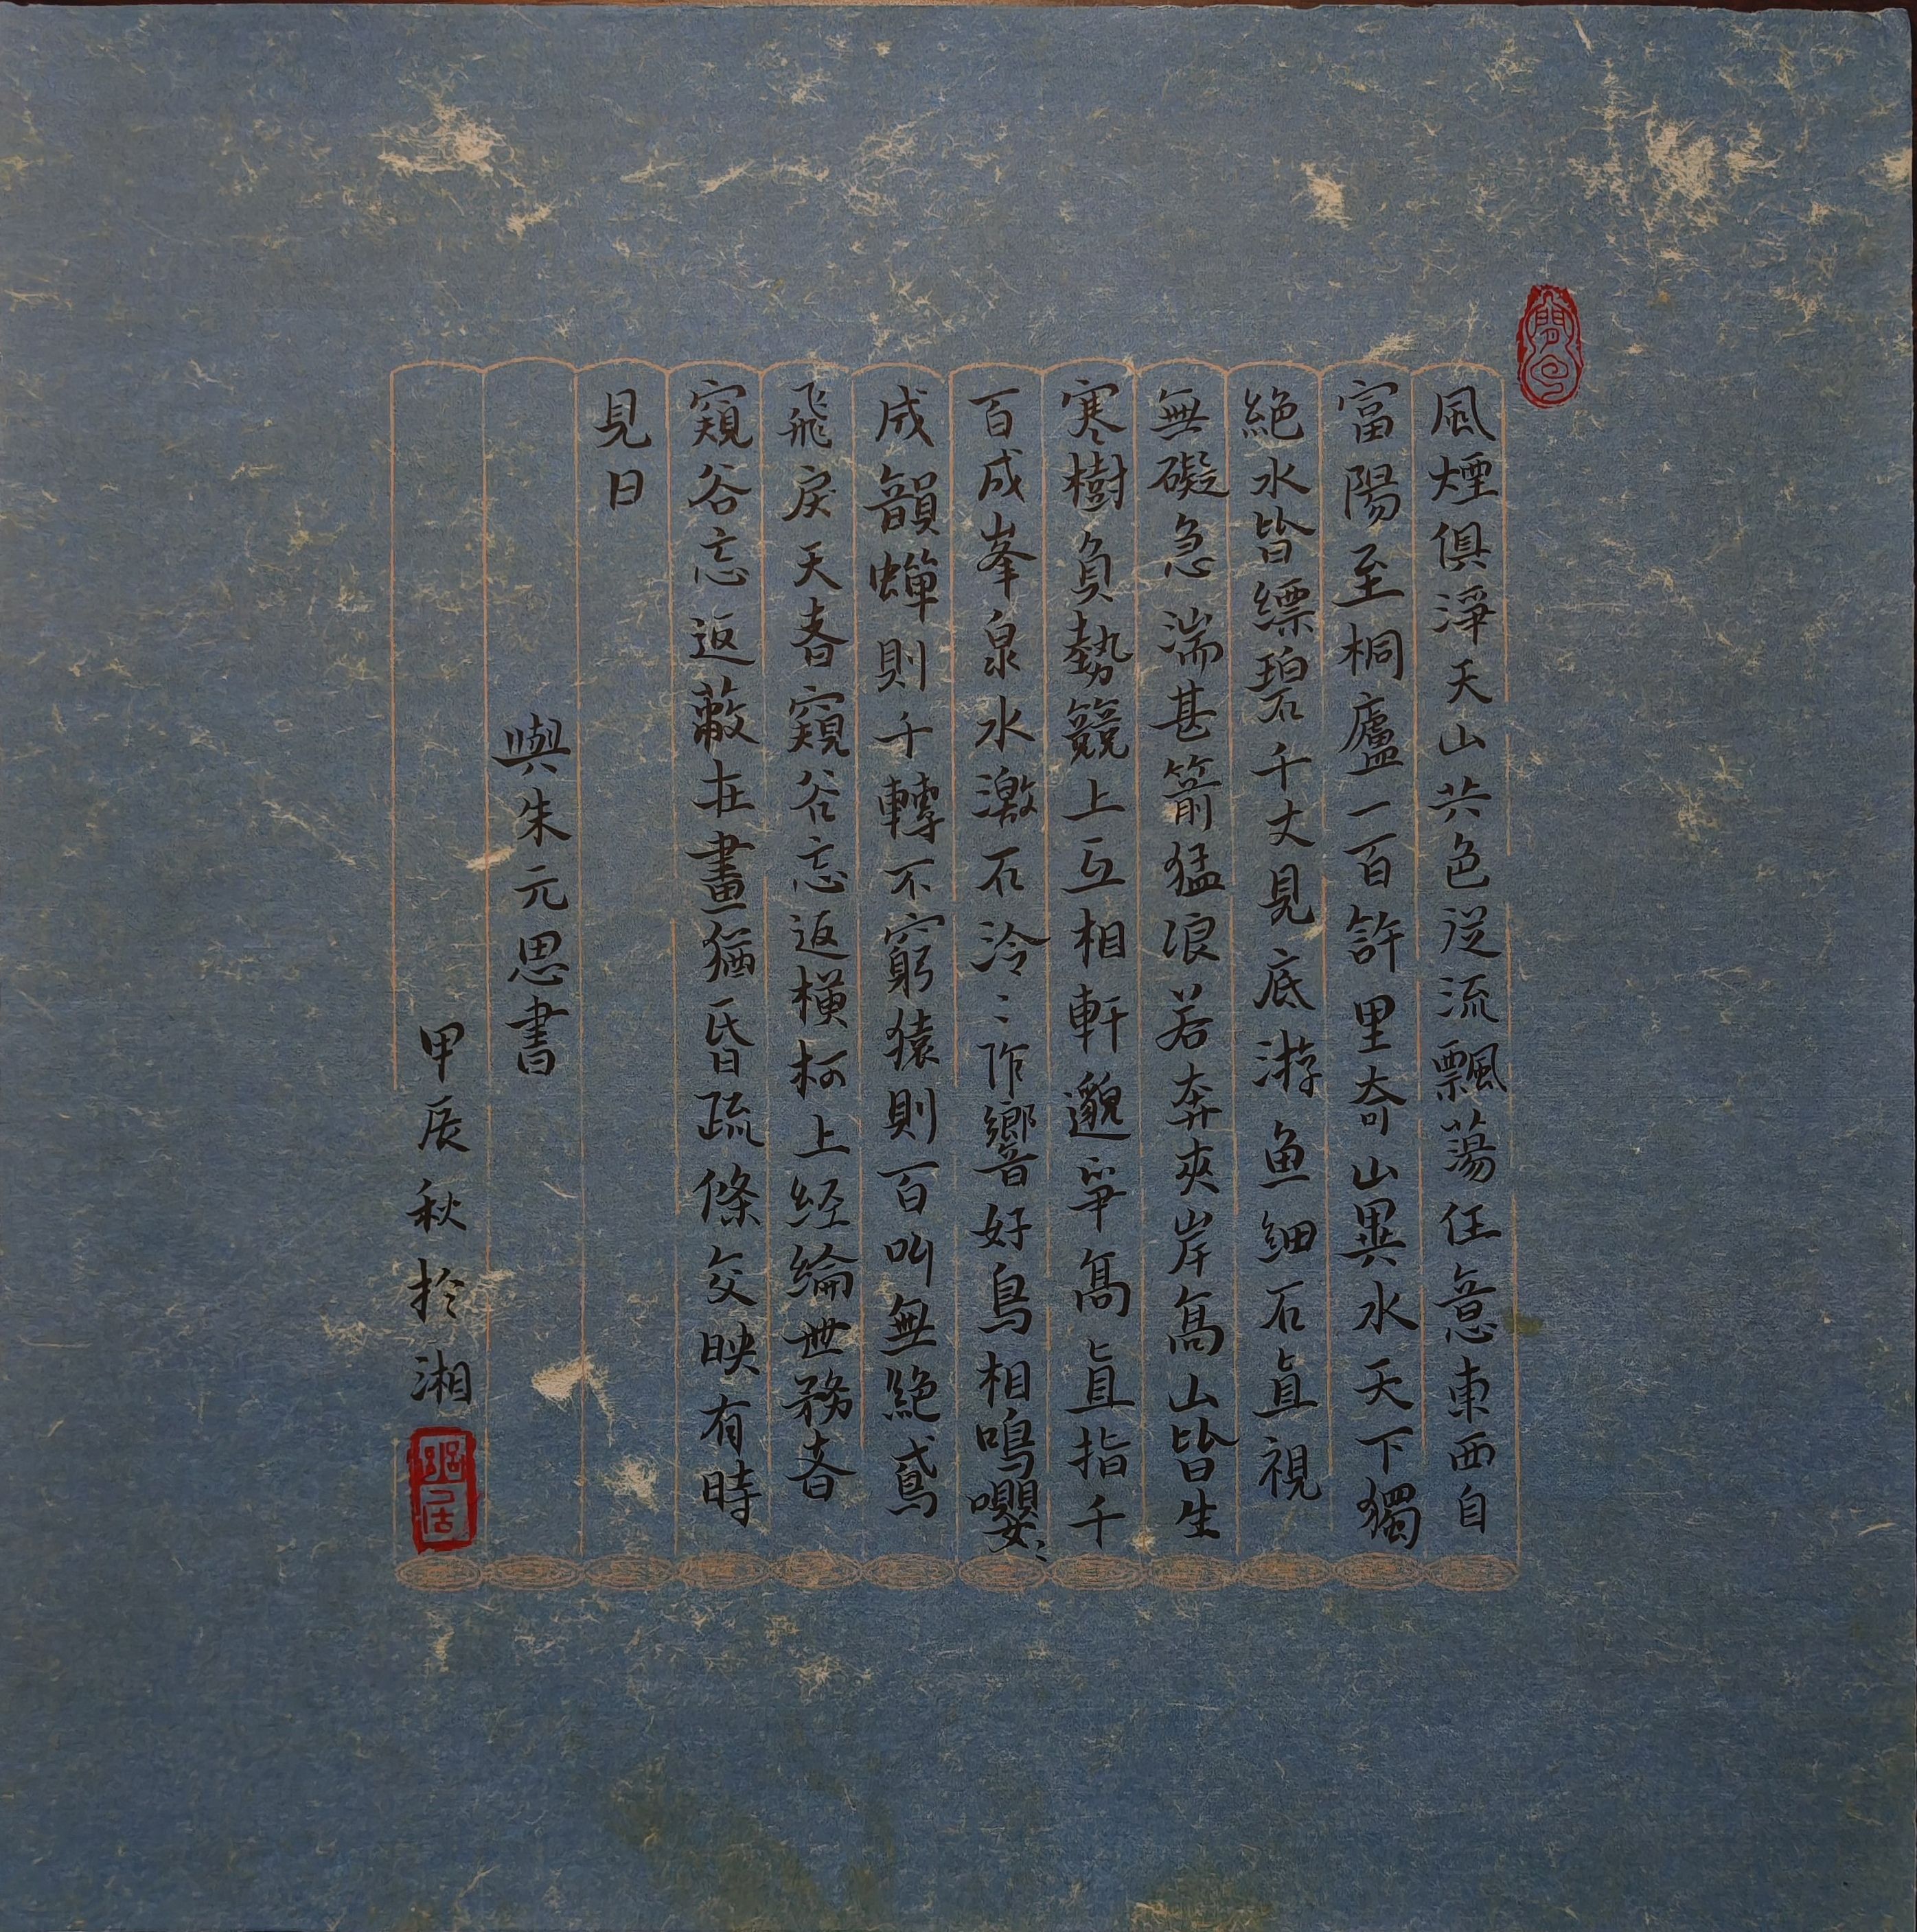 風煙俱淨天山共色從流飄蕩任意東西自
富陽至桐廬一百許里奇山異水天下獨
絶水皆縹碧千丈見底游魚細石直視
無礙急湍甚箭猛浪若奔夾岸高山皆生
寒樹負勢競上互相軒邈爭高直指千
百成峯泉水激石泠〻作響好鳥相鳴嚶〻
成韻蟬則千轉不窮猿則百叫無絶鳶
飛戾天者窺谷忘返橫柯上经綸世務者
窺谷忘返蔽在晝猶昏疏條交映有時
見日
與朱元思書
甲辰秋於湘